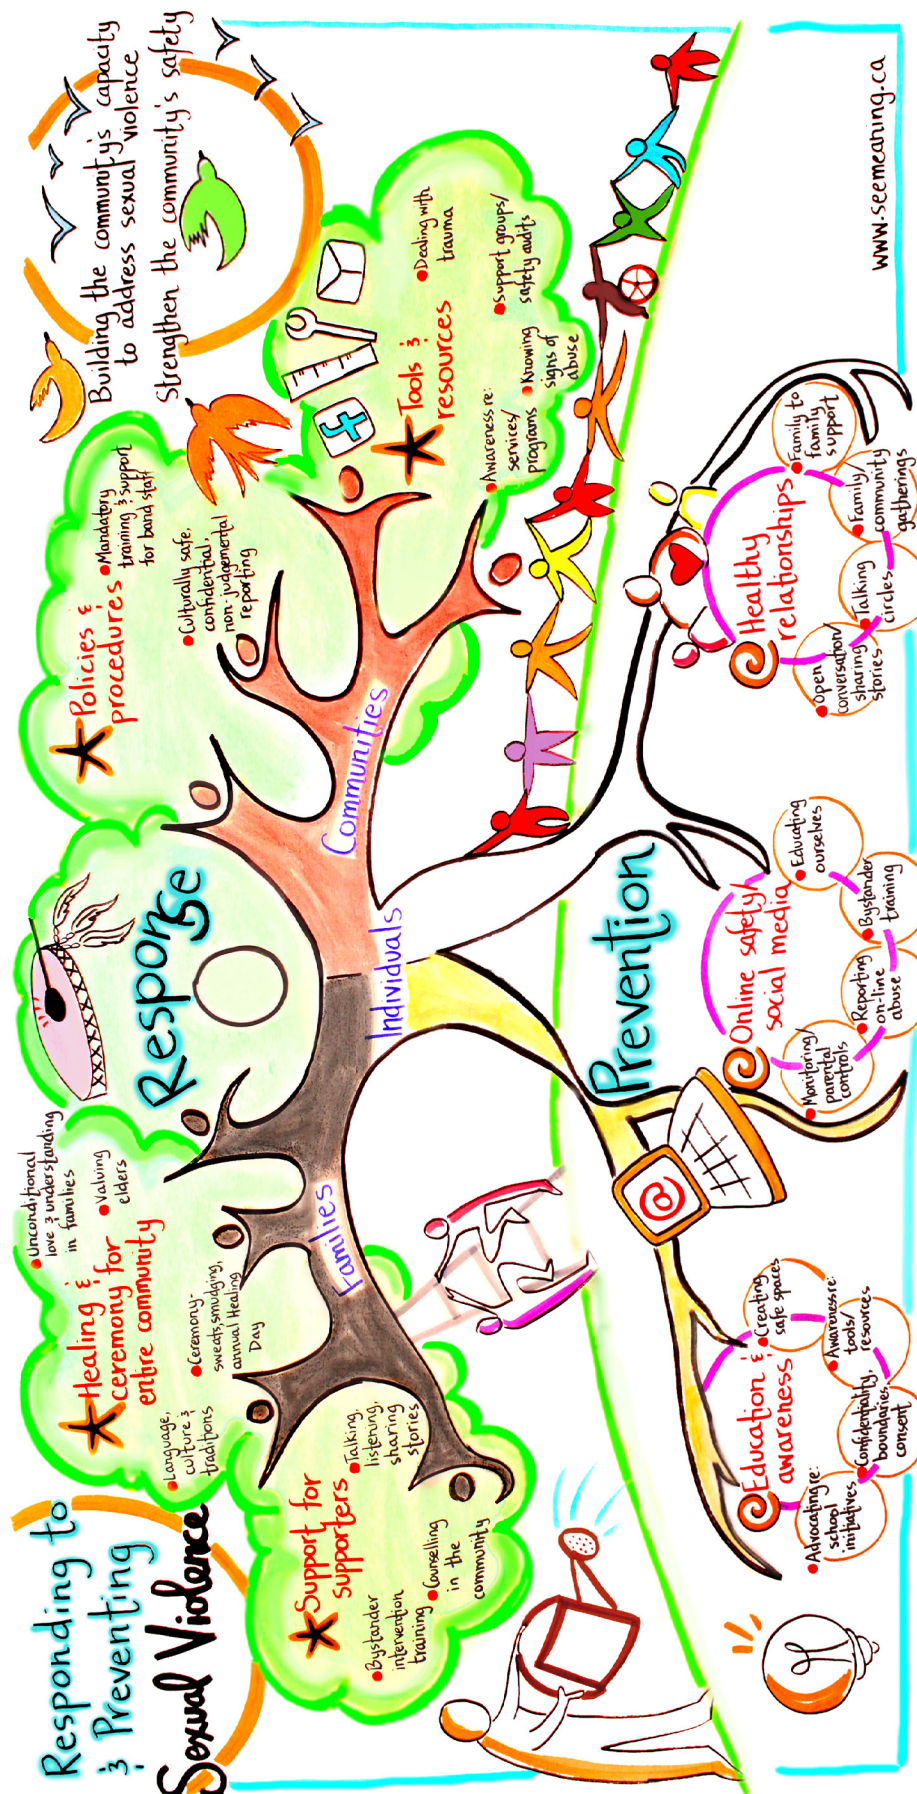 Responding to
& Preventing
Sexual Violence
Building the community's capacity
to address sexual violence
Strengthen the community's safety
Response
Support for
supporters
Bystander
intervention
training
Counselling
in the
community
Talking,
listening,
sharing
stories
Healing &
ceremony for
entire community
Unconditional
love & understanding
in families
Valuing
elders
Language,
culture &
traditions
Ceremony-
sweats, smudging,
annual Healing
Day
Policies &
procedures
Mandatory
training & support
for band staff
Culturally safe,
confidential,
non-judgemental
reporting
Tools &
resources
f
Dealing with
trauma
Awareness re:
services/
programs
Knowing
signs of
abuse
Support groups/
safety audits
Families
Individuals
Communities
Prevention
@
Education &
awareness
Advocating re:
school
initiatives
Confidentiality,
boundaries,
consent
Awareness re:
tools/
resources
Creating
safe spaces
Online safety/
social media
Monitoring/
parental
controls
Reporting
on-line
abuse
Bystander
training
Educating
ourselves
Healthy
relationships
Open
conversation/
sharing
stories
Talking
circles
Family/
community
gatherings
Family to
family
support
www.seemeaning.ca